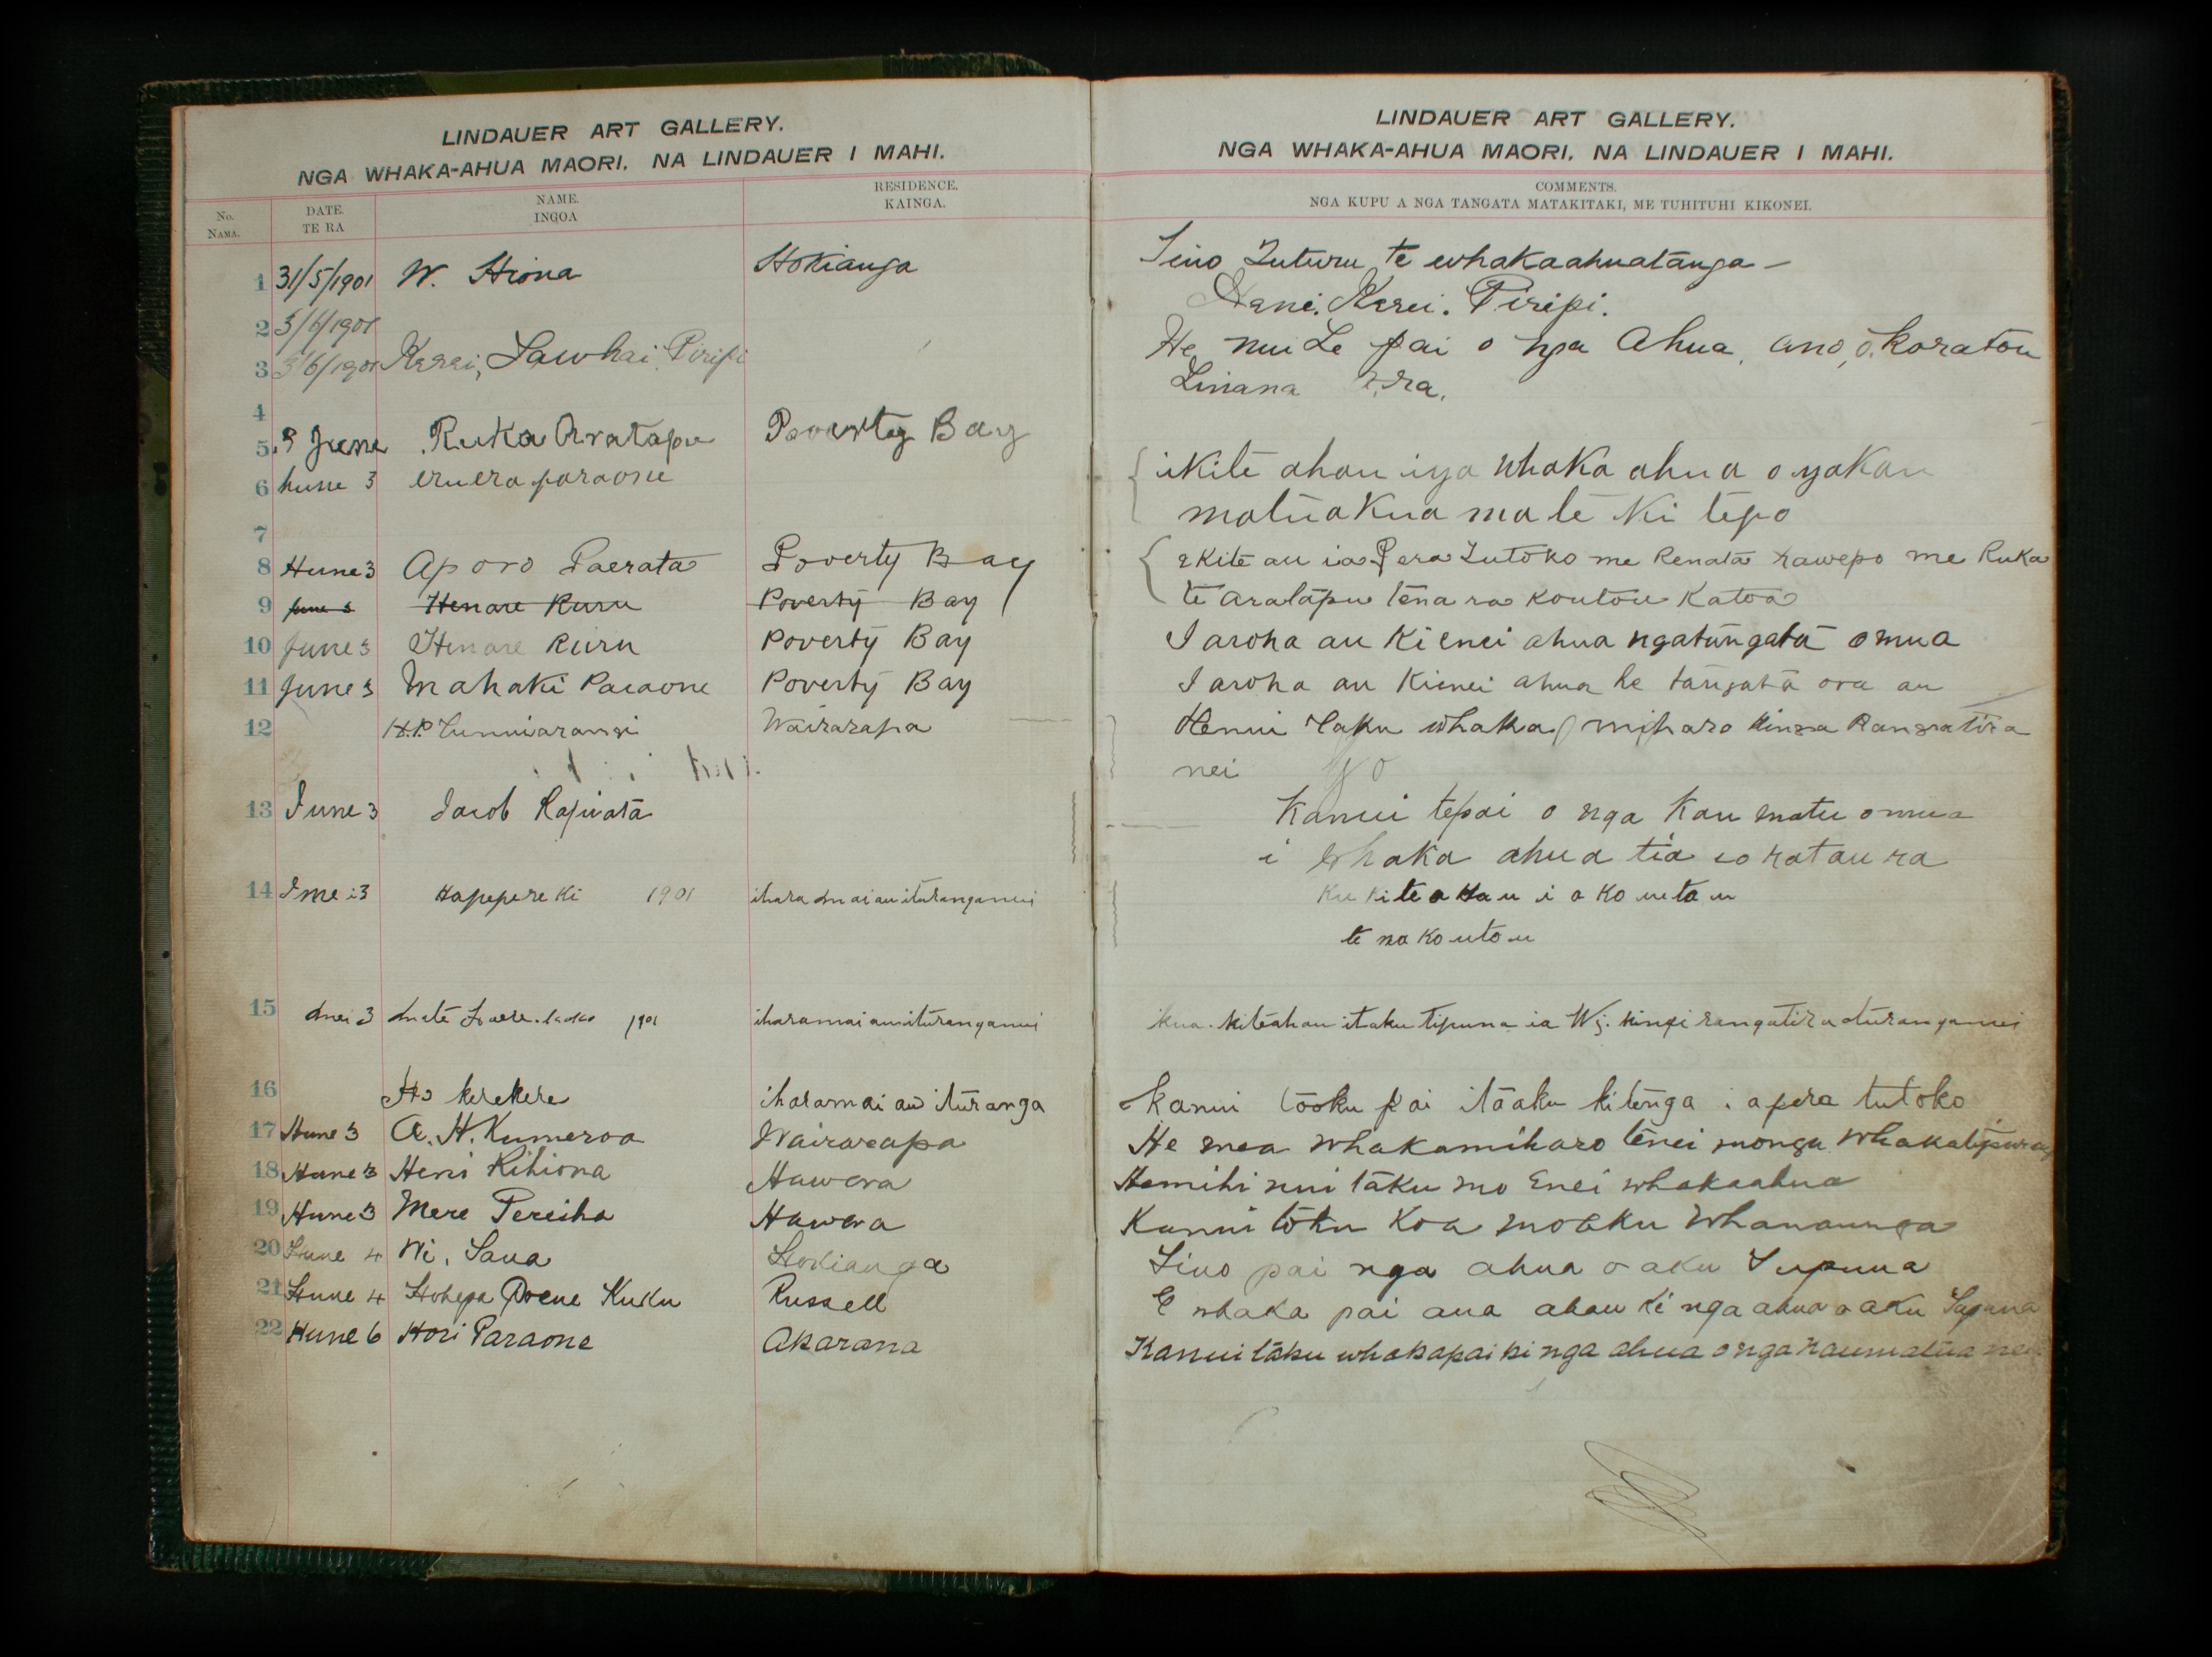 LINDAUER ART GALLERY.
NGA WHAKA-AHUA MAORI. NA LINDAUER I MAHI.
No. NAMA. DATE. TE RA NAME. INGOA RESIDENCE. KAINGA.
1 31/5/1901 W. Hiona Hokianga
2 3/6/1901
3 3/6/1901 Kerei, Tawhai Piripi
4
5 3 June Ruka Aratapu Poverty Bay
6 hune 3 eruera paraone
7
8 Hune 3 Aporo Paerata Poverty Bay
9 June 3 Henare Ruru Poverty Bay
10 June 3 Henare Ruru Poverty Bay
11 June 3 Mahaki Paraone Poverty Bay
12 H.P. Tunuiarangi Wairarapa
13 June 3 Jacob Rapiata
14 3 Hapepere Ki 1901 ihara mai au ituranganui
15 3 1901 iharamai auituranganui
16 kerekere iharamai au ituranga
17 Hune 3 A. H. Kumeroa Wairarapa
18 Hune 3 Heni Rihiona Hawera
19 Hune 3 Mere Pereiha Hawera
20 Hune 4 Wi. Taua Hokianga
21 Hune 4 Hohepa Poene Kuku Russell
22 Hune 6 Hori Paraone Akarana
LINDAUER ART GALLERY.
NGA WHAKA-AHUA MAORI. NA LINDAUER I MAHI.
COMMENTS.
NGA KUPU A NGA TANGATA MATAKITAKI, ME TUHITUHI KIKONEI.
Tino Tuturu te whakaahuatanga -
Hani. Kerei. Piripi.
He nui te pai o nga Ahua, ano, o, koratou
Tinana
ikite ahau iga whaka ahua o gakau
matuakua mate ki tepo
ekite au ia Pera Tutoko me Renata Kawepo me Ruka
te aratapu tena ra koutou Katoa
I aroha au Ki enei ahua ngatangata omua
I aroha au Kienei ahua he tangata ora au
Henui Taku whaka miharo kinga Rangatira
nei
Kanui tepai o nga Kau matu omua
i whaka ahua tia
ku kite a Hau i a ko ueta u
te na ko uto u
ikua kiteahau itaku tipuna ia Wj. kingi rangatira oturanganui
kanui tooku pai itaaku kitenga i apera tutoko
He mea whakamiharo tenei monga
Hemihi nui taku mo Enei whakaahua
Kanui toku Koa moaku Whanaunga
Tino pai nga ahua o aku Tupuna
E whaka pai ana ahau ki nga ahua o aku Tupuna
Kanui taku whakapai ki nga ahua o nga kaumatua nei